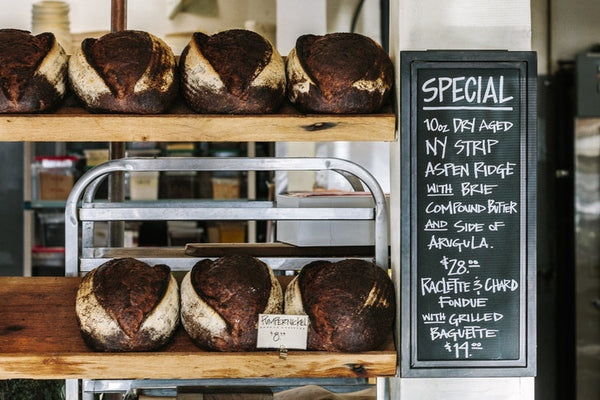 SPECIAL
10oz DRY AGED
NY STRIP
ASPEN RIDGE
WITH BRIE
COMPOUND BUTTER
AND SIDE OF
ARUGULA.
$28.00
RACLETTE & CHARD
FONDUE
WITH GRILLED
BAGUETTE
$14.00
PUMPERNICKEL
$8